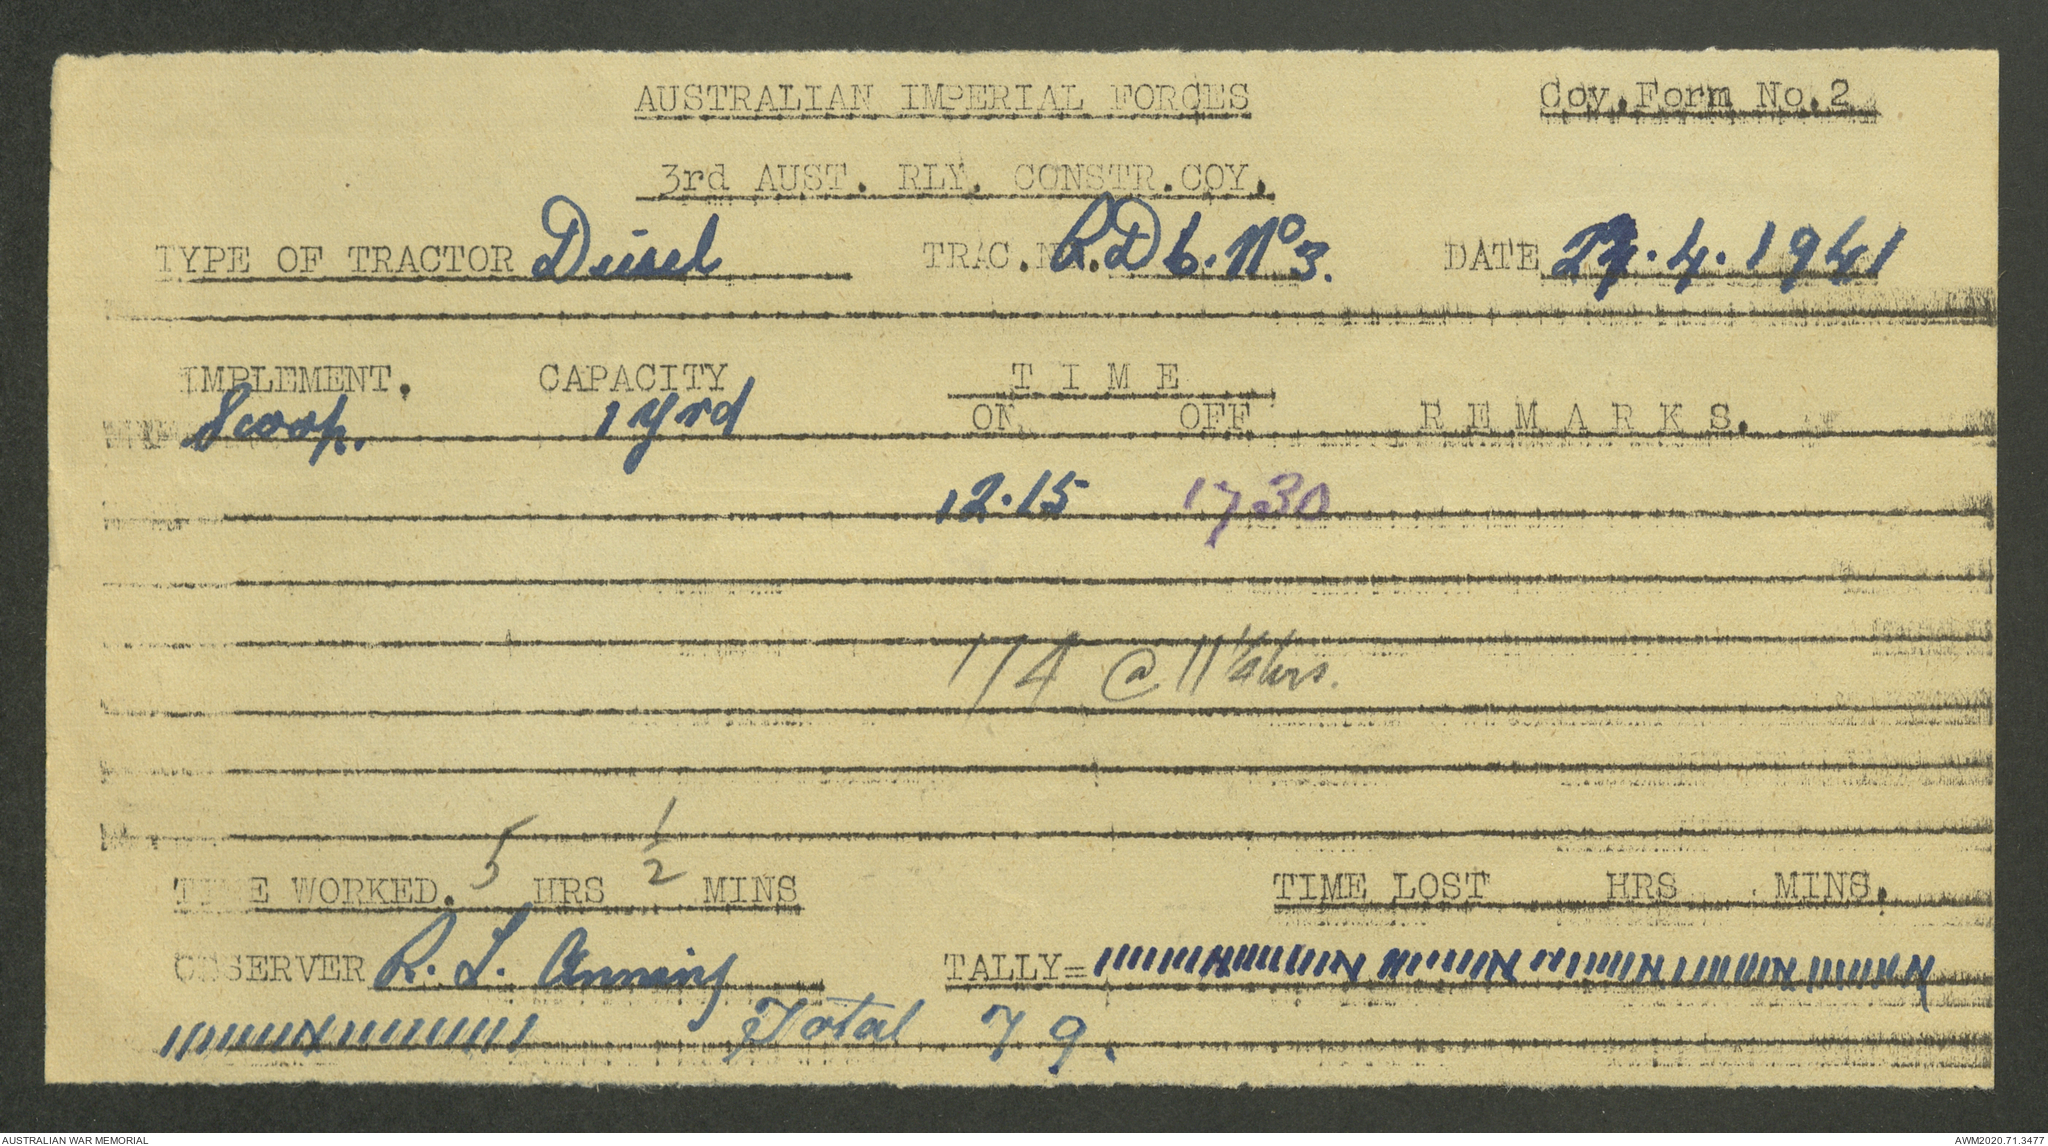 AUSTRALIAN IMPERIAL FORCES Coy.Form No.2
3rd AUST. RLY. CONSTR.COY.
TYPE OF TRACTOR Diesel TRAC.N R.D 6. No 3. DATE 29.4.1941
IMPLEMENT. CAPACITY T I M E
Scoop. 1 yrd ON OFF R E M A R K S.
12.15 1730
174 @ 11 1/4 hrs.
TIME WORKED. 5 HRS 1/2 MINS TIME LOST HRS MINS.
OBSERVER R. L. Anning TALLY=
Total 79.
AUSTRALIAN WAR MEMORIAL AWM2020.71.3477